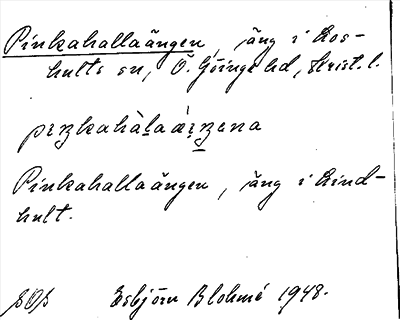 Pinkahallaängen, äng i Los-
hults sn, Ö. Göinge hd, Krist. l.
Pinkahallaängen, äng i Kind-
hult.
Esbjörn Blohmé 1948.